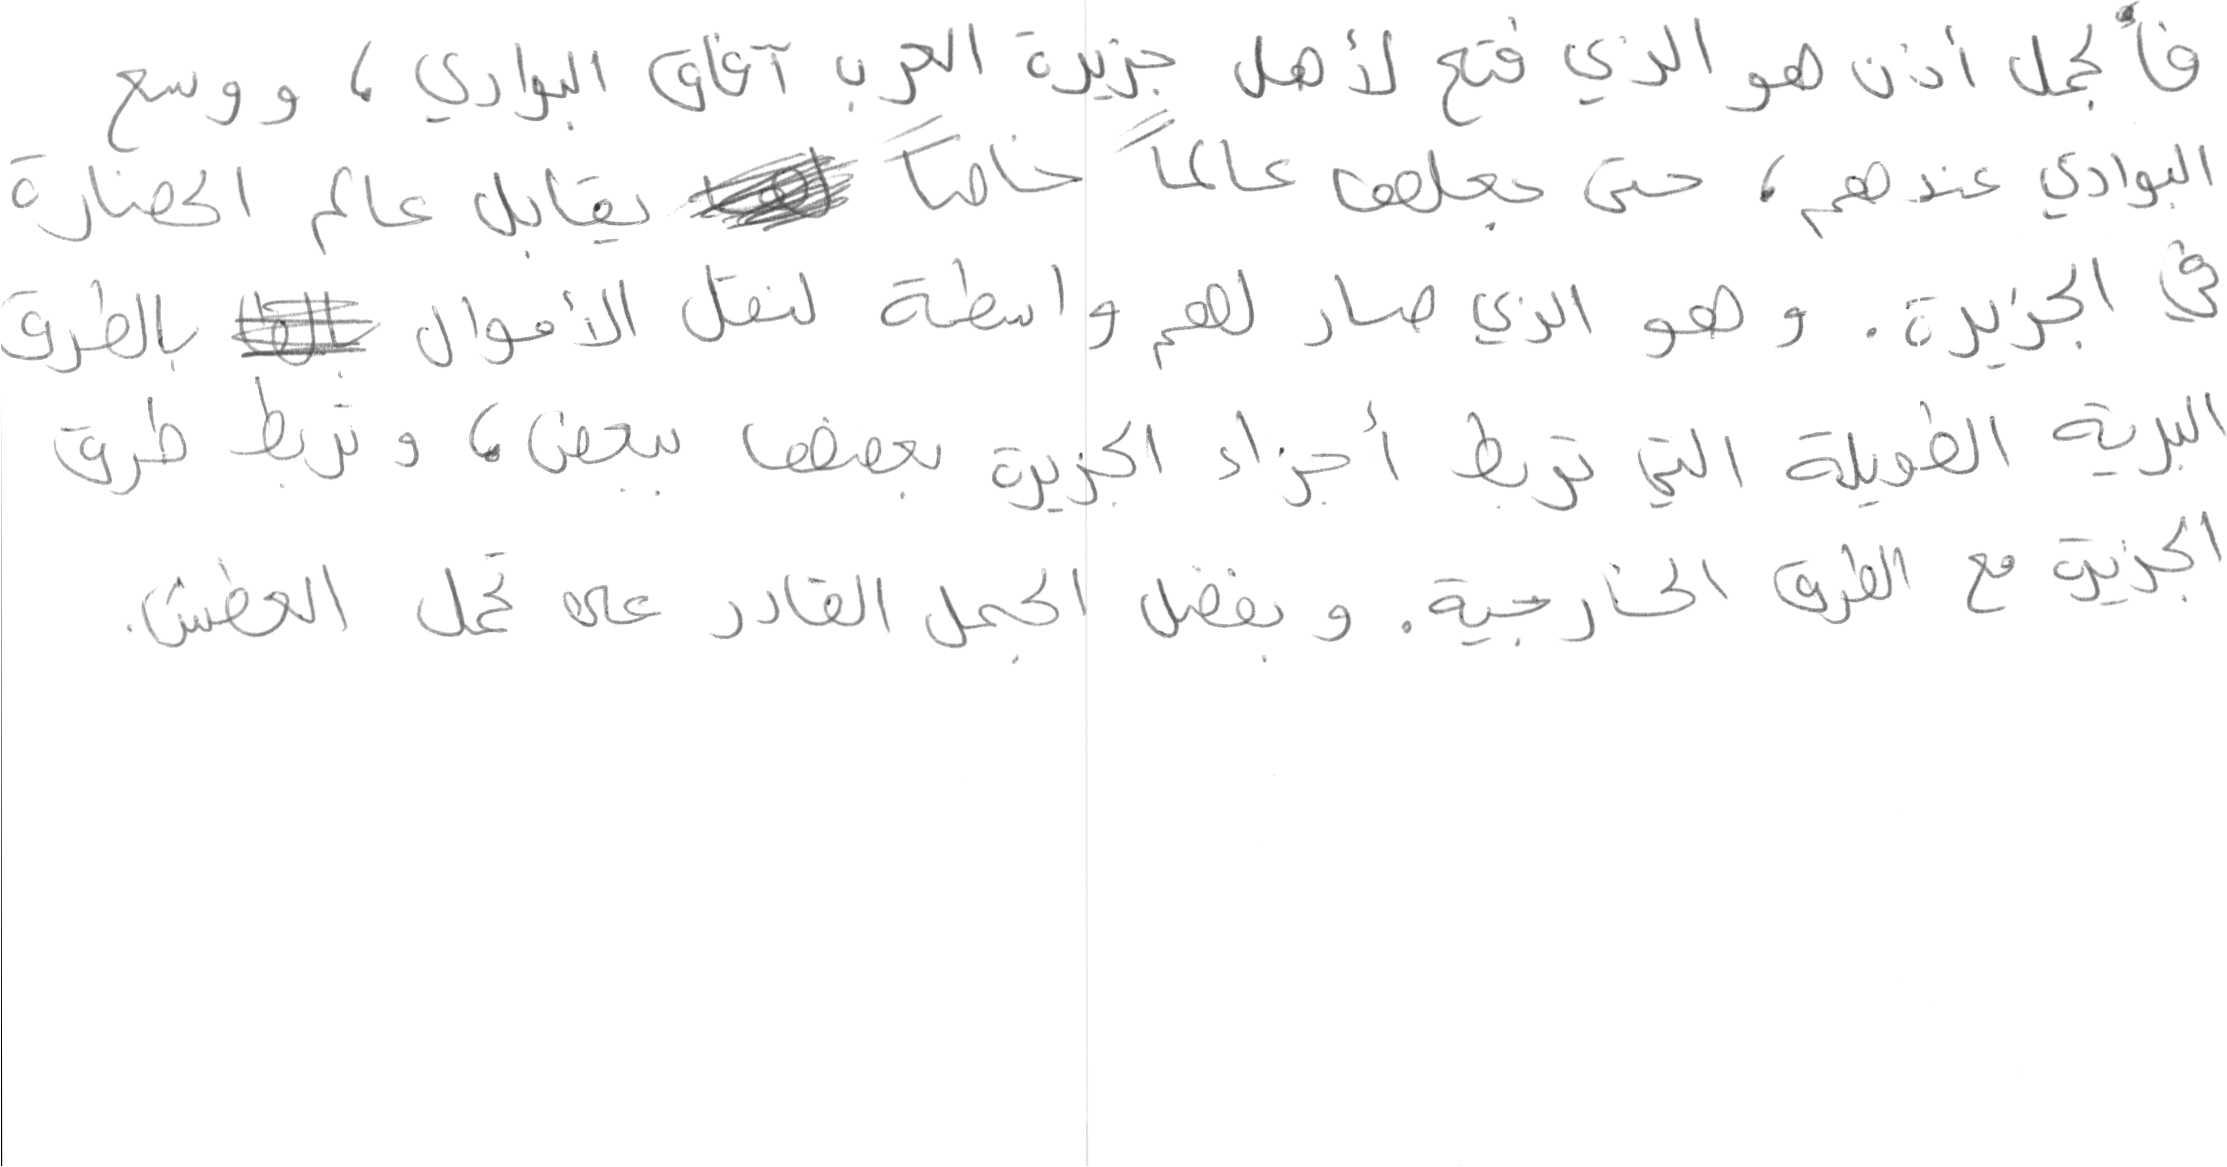 فألجمل أذن هو الذي فتح لأهل جزيرة العرب آفاق البوادي، ووسع
البوادي عندهم، حتى جعلها عالماً خاصاً يقابل عالم الحضارة
في الجزيرة. وهو الذي صار لهم واسطة لنقل الأموال بالطرق
البرية الطويلة التي تربط أجزاء الجزيرة بعضها ببعض، وتربط طرق
الجزيرة مع الطرق الخارجية. وبفضل الجمل القادر على تحمل العطش.